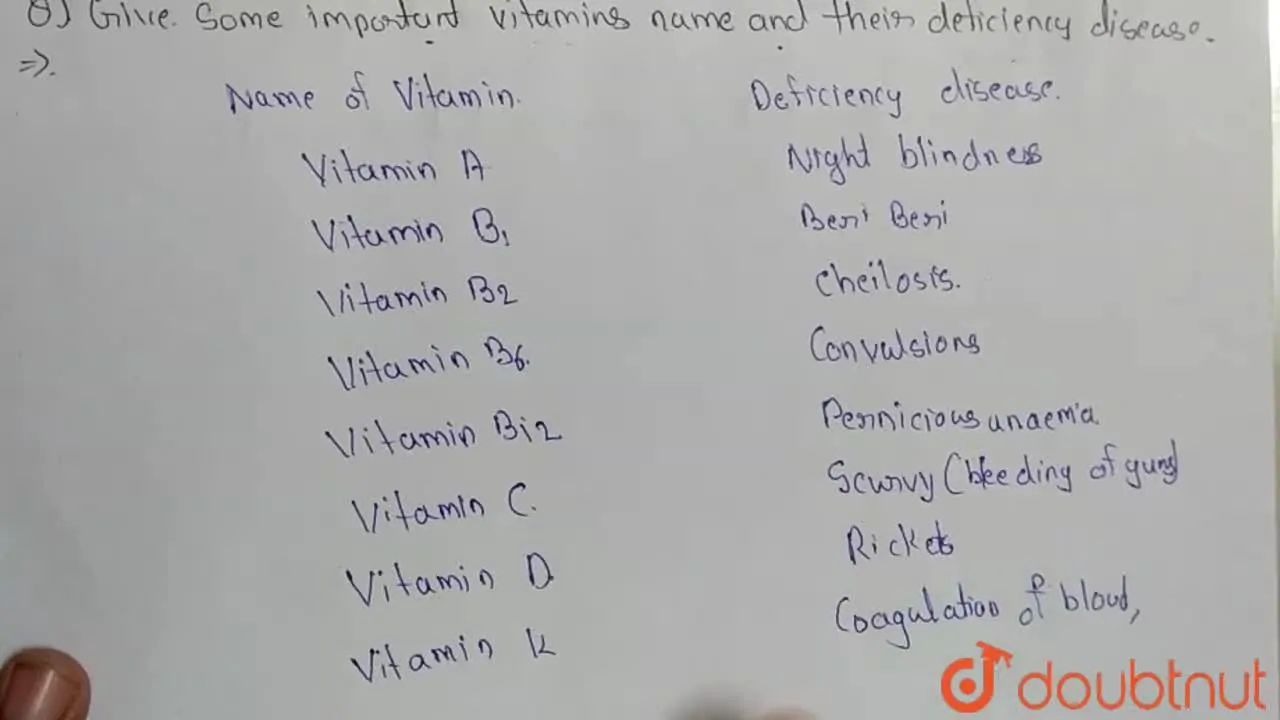 Q) Give Some important vitamins name and their deficiency disease.
=>.
Name of Vitamin. Deficiency disease.
Vitamin A Night blindness
Vitamin B1 Beri Beri
Vitamin B2 Cheilosis.
Vitamin B6. Convulsions
Vitamin B12 Pernicious anaemia.
Vitamin C. Scurvy (bleeding of gums)
Vitamin D Rickets
Vitamin K Coagulation of blood,
doubtnut